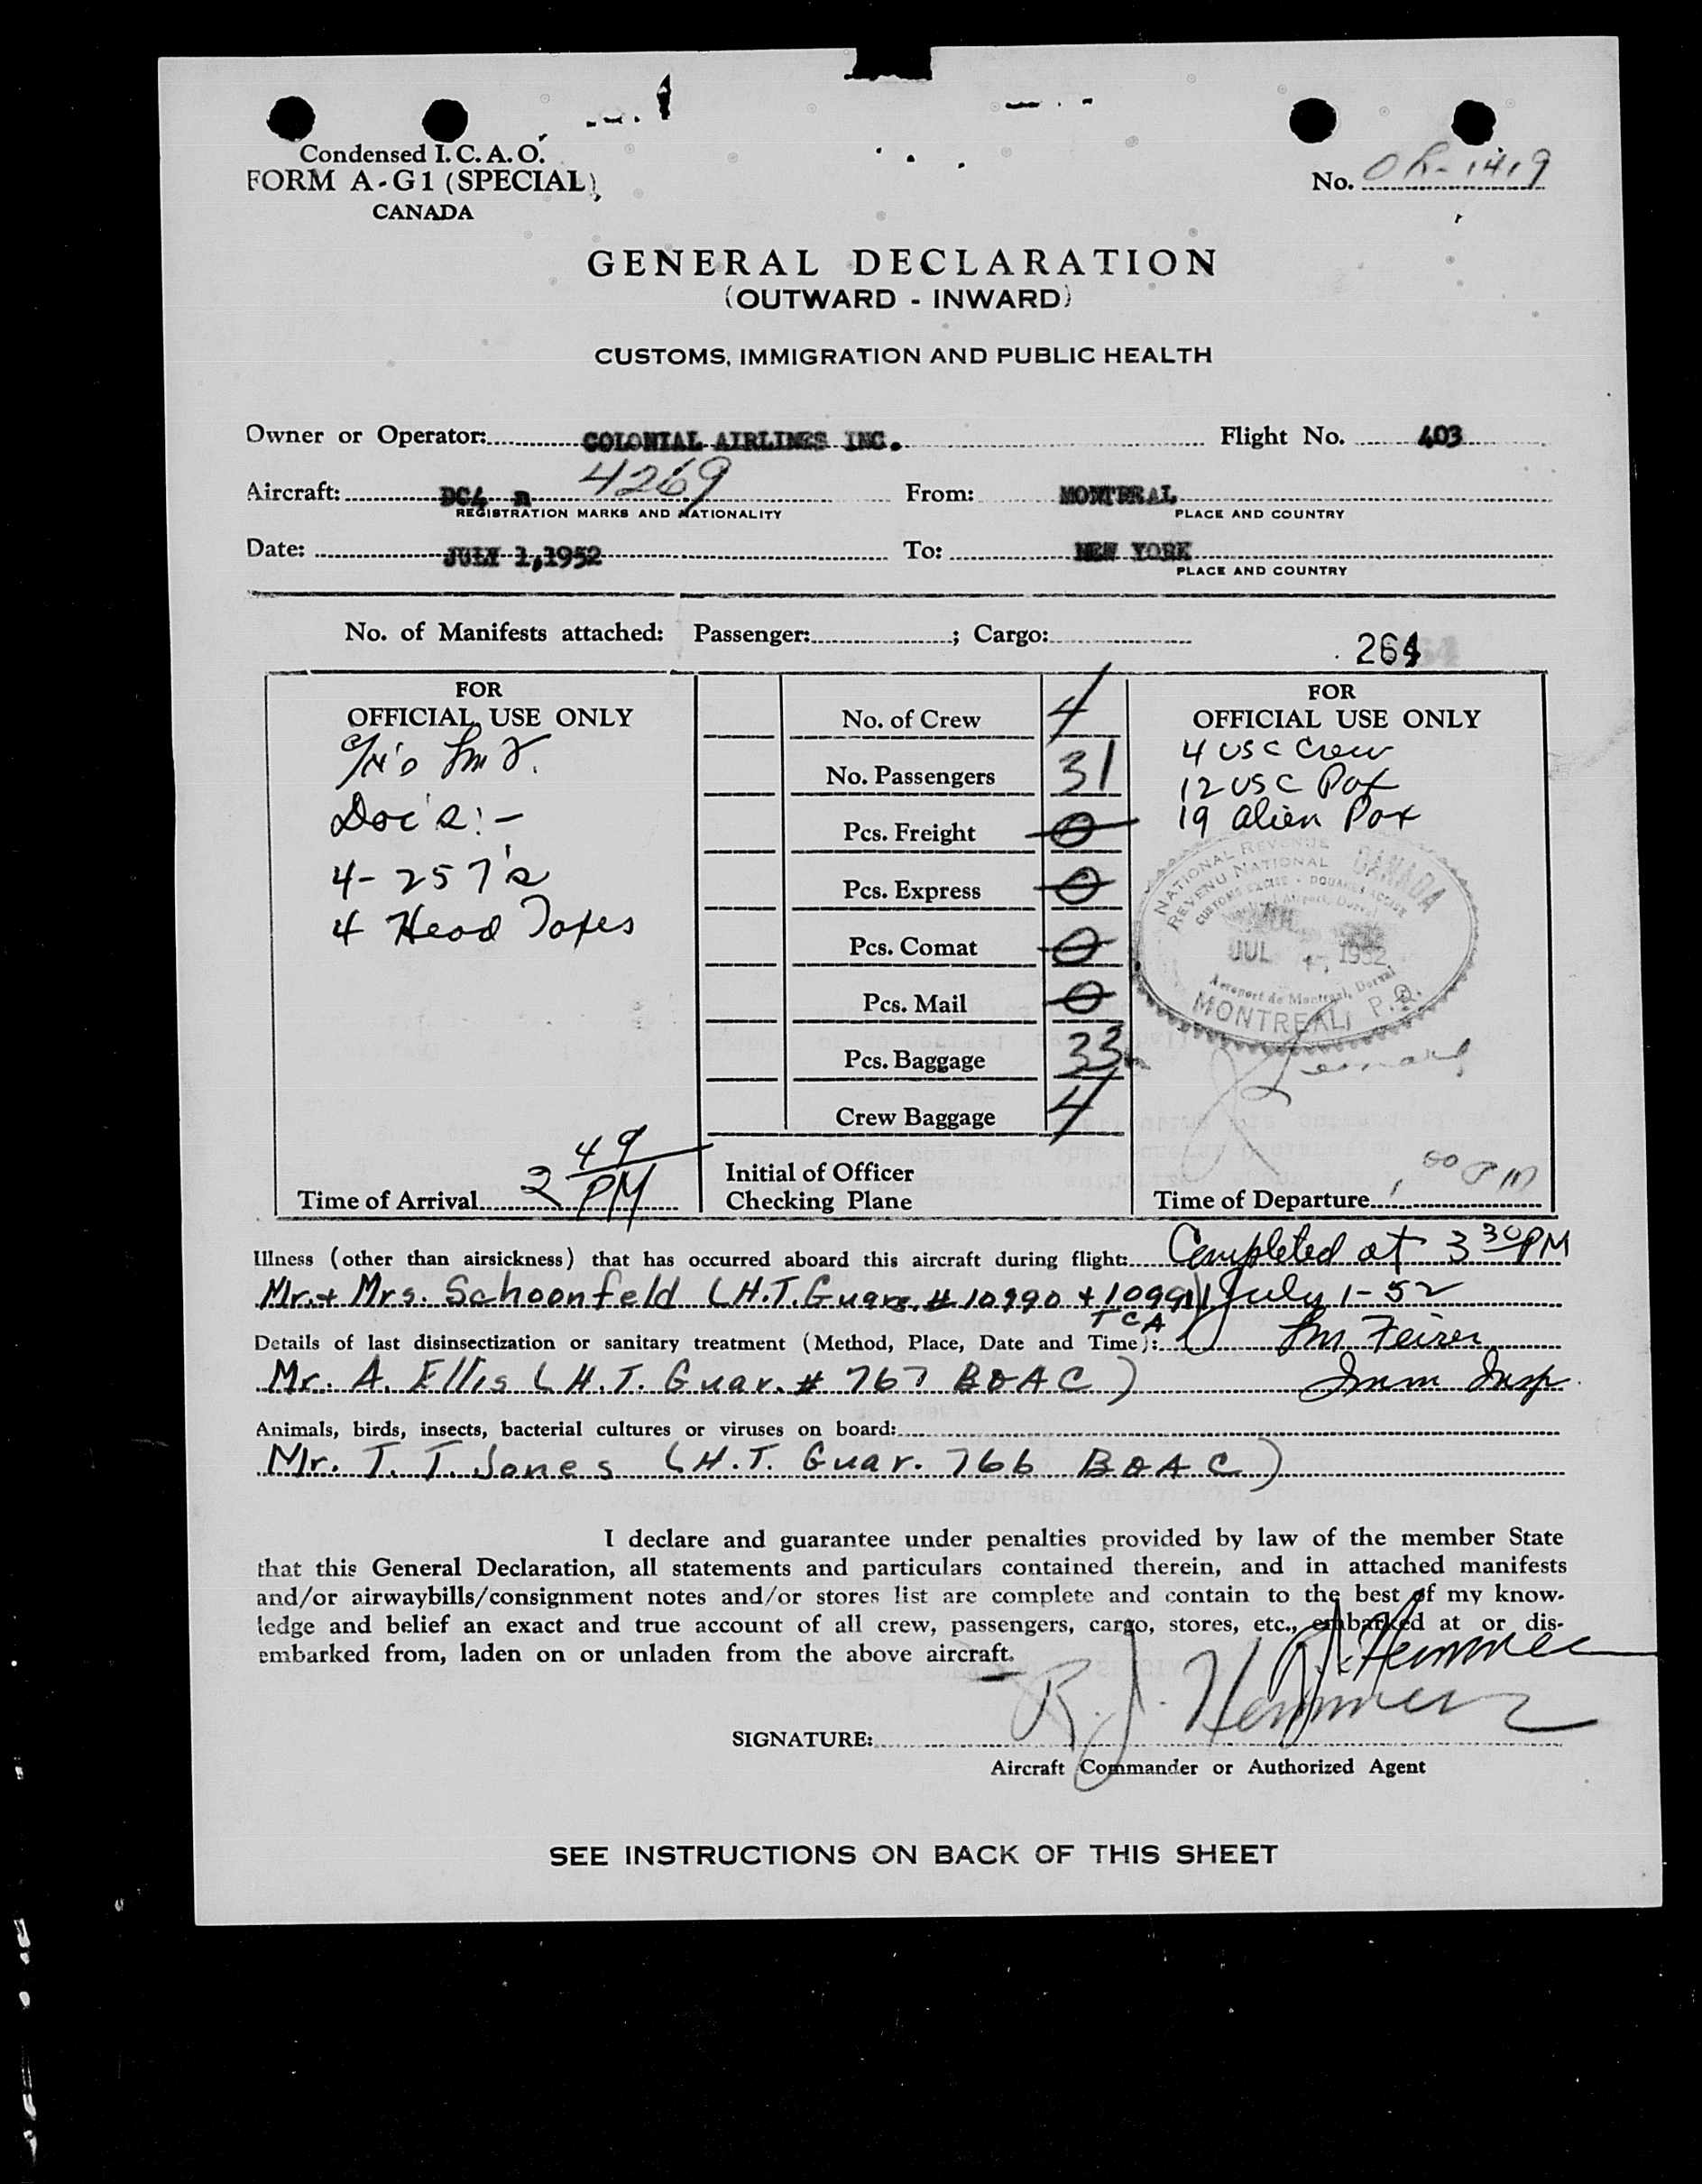 Condensed I. C. A. O.
FORM A-G1 (SPECIAL)
CANADA
No. OR-1419
GENERAL DECLARATION
(OUTWARD - INWARD)
CUSTOMS, IMMIGRATION AND PUBLIC HEALTH
Owner or Operator: COLONIAL AIRLINES INC. Flight No. 403
Aircraft: DC4 n 4269 From: MONTREAL
REGISTRATION MARKS AND NATIONALITY PLACE AND COUNTRY
Date: JULY 1,1952 To: NEW YORK
PLACE AND COUNTRY
No. of Manifests attached: Passenger: ; Cargo:
264
FOR
OFFICIAL USE ONLY
Doc's:-
4- 257's
4 Head Taxes
Time of Arrival 2 49 PM
No. of Crew 4
No. Passengers 31
Pcs. Freight 0
Pcs. Express 0
Pcs. Comat 0
Pcs. Mail 0
Pcs. Baggage 33
Crew Baggage 4
Initial of Officer
Checking Plane
FOR
OFFICIAL USE ONLY
4 USC Crew
12 USC Pax
19 alien Pax
NATIONAL REVENUE
REVENU NATIONAL
CANADA
CUSTOMS EXCISE · DOUANES ACCISE
Montreal Airport, Dorval
JUL 1952
Aeroport de Montreal, Dorval
MONTREAL, P.Q.
Time of Departure 1 00 PM
Illness (other than airsickness) that has occurred aboard this aircraft during flight: Completed at 3 30 PM
Mr. & Mrs. Schoonfeld (H.T. Guars. # 10990 & 10991) July 1-52
TCA
Details of last disinsectization or sanitary treatment (Method, Place, Date and Time): Feirer
Mr. A. Ellis (H.T. Guar. # 767 BOAC) Imm Insp.
Animals, birds, insects, bacterial cultures or viruses on board:
Mr. T. T. Jones (H.T. Guar. 766 BOAC)
I declare and guarantee under penalties provided by law of the member State
that this General Declaration, all statements and particulars contained therein, and in attached manifests
and/or airwaybills/consignment notes and/or stores list are complete and contain to the best of my know-
ledge and belief an exact and true account of all crew, passengers, cargo, stores, etc., embarked at or dis-
embarked from, laden on or unladen from the above aircraft.
R. J. Hemmer
SIGNATURE: R. J. Hemmer
Aircraft Commander or Authorized Agent
SEE INSTRUCTIONS ON BACK OF THIS SHEET